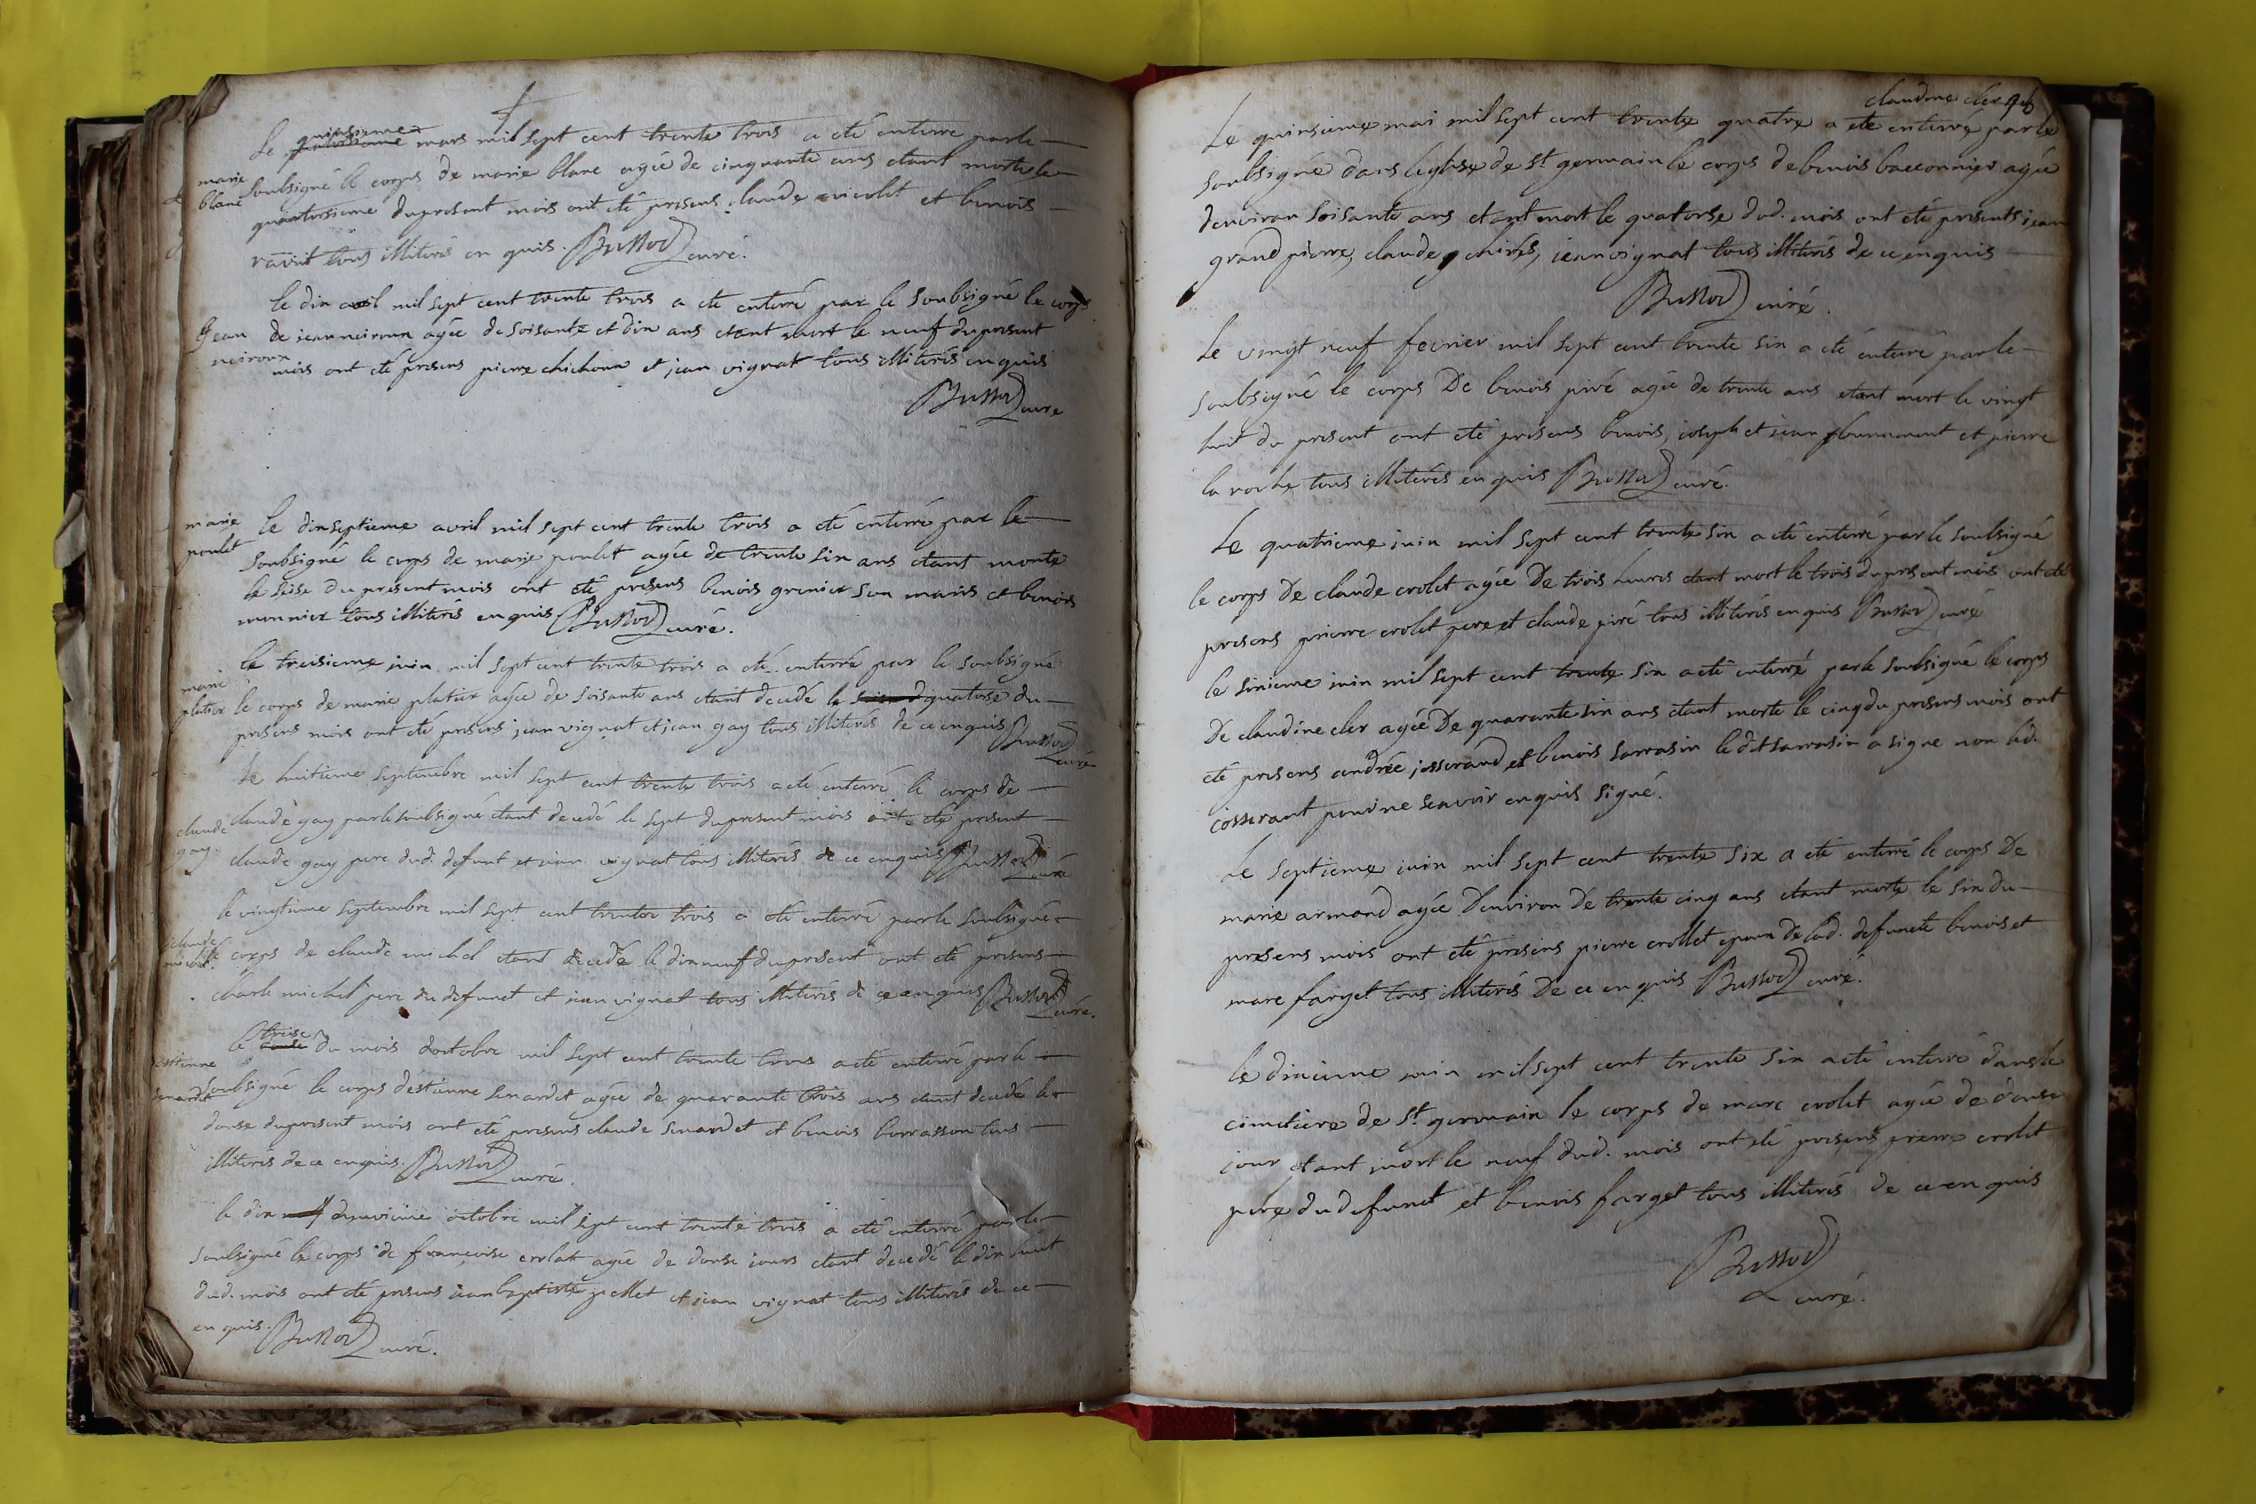 Le quinsieme mars mil sept cent trente trois a eté enterre par le
marie
blanc
soubsigné le corps de marie blanc agée de cinquante ans etant morte le
quatorsieme du present mois ont eté presens claude nicolet et benois
ravit tous illiterés en quis. Bussod curé.
le dix avril mil sept cent trente trois a ete enterré par le soubsigné le corps
Jean
neiroux
de jean neiroux agée de soisante et dix ans etant mort le neuf du present
mois ont eté presens pierre chichoux et jean vignat tous illiterés enquis
Bussod cure
marie
poulet
le dixseptieme avril mil sept cent trente trois a eté enterré par le
soubsigné le corps de marie poulet agée de trente six ans etant morte
le seise du present mois ont eté presens benois grenier son maris et benois
monnier tous illiterés enquis Bussod curé.
le treisieme juin mil sept cent trente trois a eté enterré par le soubsigné
marie
platier
le corps de marie platier agée de soisante ans etant decedé le quatorse du
presens mois ont eté presens jean vignat et jean gay tous illiterés de ce enquis Bussod
curé
Le huitieme septembre mil sept cent trente trois a eté enterré le corps de
claude
gay
claude gay par le soubsigné etant decedé le sept du present mois ont eté present
claude gay pere dud. defunt et jean vignat tous illiterés de ce enquis Bussod
curé
le vingtieme septembre mil sept cent trente trois a eté enterré par le soubsigné
claude
michel
le corps de claude michel etant decedé le dixneuf du present ont eté presens
charle michel pere du defunct et jean vignat tous illiterés de ce enquis Bussod
curé.
le treise du mois doctobre mil sept cent trente trois a eté enterré par le
estienne
senardet
soubsigné le corps destienne senardet agée de quarante trois ans etant decedé le
douse du present mois ont eté presens claude senardet et benois borrasson tous
illiterés de ce enquis. Bussod curé.
le dix neuvieme octobre mil sept cent trente trois a eté enterré par le
soubsigné le corps de francoise crolat agée de douse jours etant decedé le dix huit
dud. mois ont eté presens jean baptiste pellet et jean vignat tous illiterés de ce
en quis. Bussod curé.
claudine cler
Le quinsieme mai mil sept cent trente quatre a ete enterré par le
soubsigné dans leglise de st germain le corps de benois bacconnier agée
denviron soisante ans etant mort le quatorse dud. mois ont eté presents jean
grand pierre, claude, jean vignat tous illiterés de ce enquis
Bussod curé.
Le vingt neuf fevrier mil sept cent trente six a eté enterré par le
soubsigné le corps De benois piré agée de trente ans etant mort le vingt
huit du present ont eté presens benois, joseph et jean et pierre
la roche tous illiterés en quis Bussod curé.
Le quatrieme juin mil sept cent trente six a eté enterré par le soubsigné
le corps De claude crolet agée De trois heures etant mort le trois du present mois ont eté
presens prierre crolet pere et claude piré tous illiterés en quis Bussod curé
le sixieme juin mil sept cent trente six a eté enterré par le soubsigné le corps
De claudine cler agée De quarante six ans etant morte le cinq du presens mois ont
eté presens andrée josserand et benois sarrasin le dit sarrasin a signe non led.
josserant pour ne scavoir enquis signé.
Le septieme juin mil sept cent trente six a eté enterré le corps De
marie armand agée Denviron De trente cinq ans etant morte le six du
presens mois ont eté presens pierre crollet epoux de lad. defuncte benois et
marc farget tous illiterés De ce en quis Bussod curé.
le dixieme juin mil sept cent trente six a eté enterré dans le
cimetiere de st. germain le corps de marc crolet agée de donse
jour etant mort le neuf dud. mois ont eté presens prierre crolet
pere du defunct et benois farget tous illiterés de ce en quis
Bussod
curé.